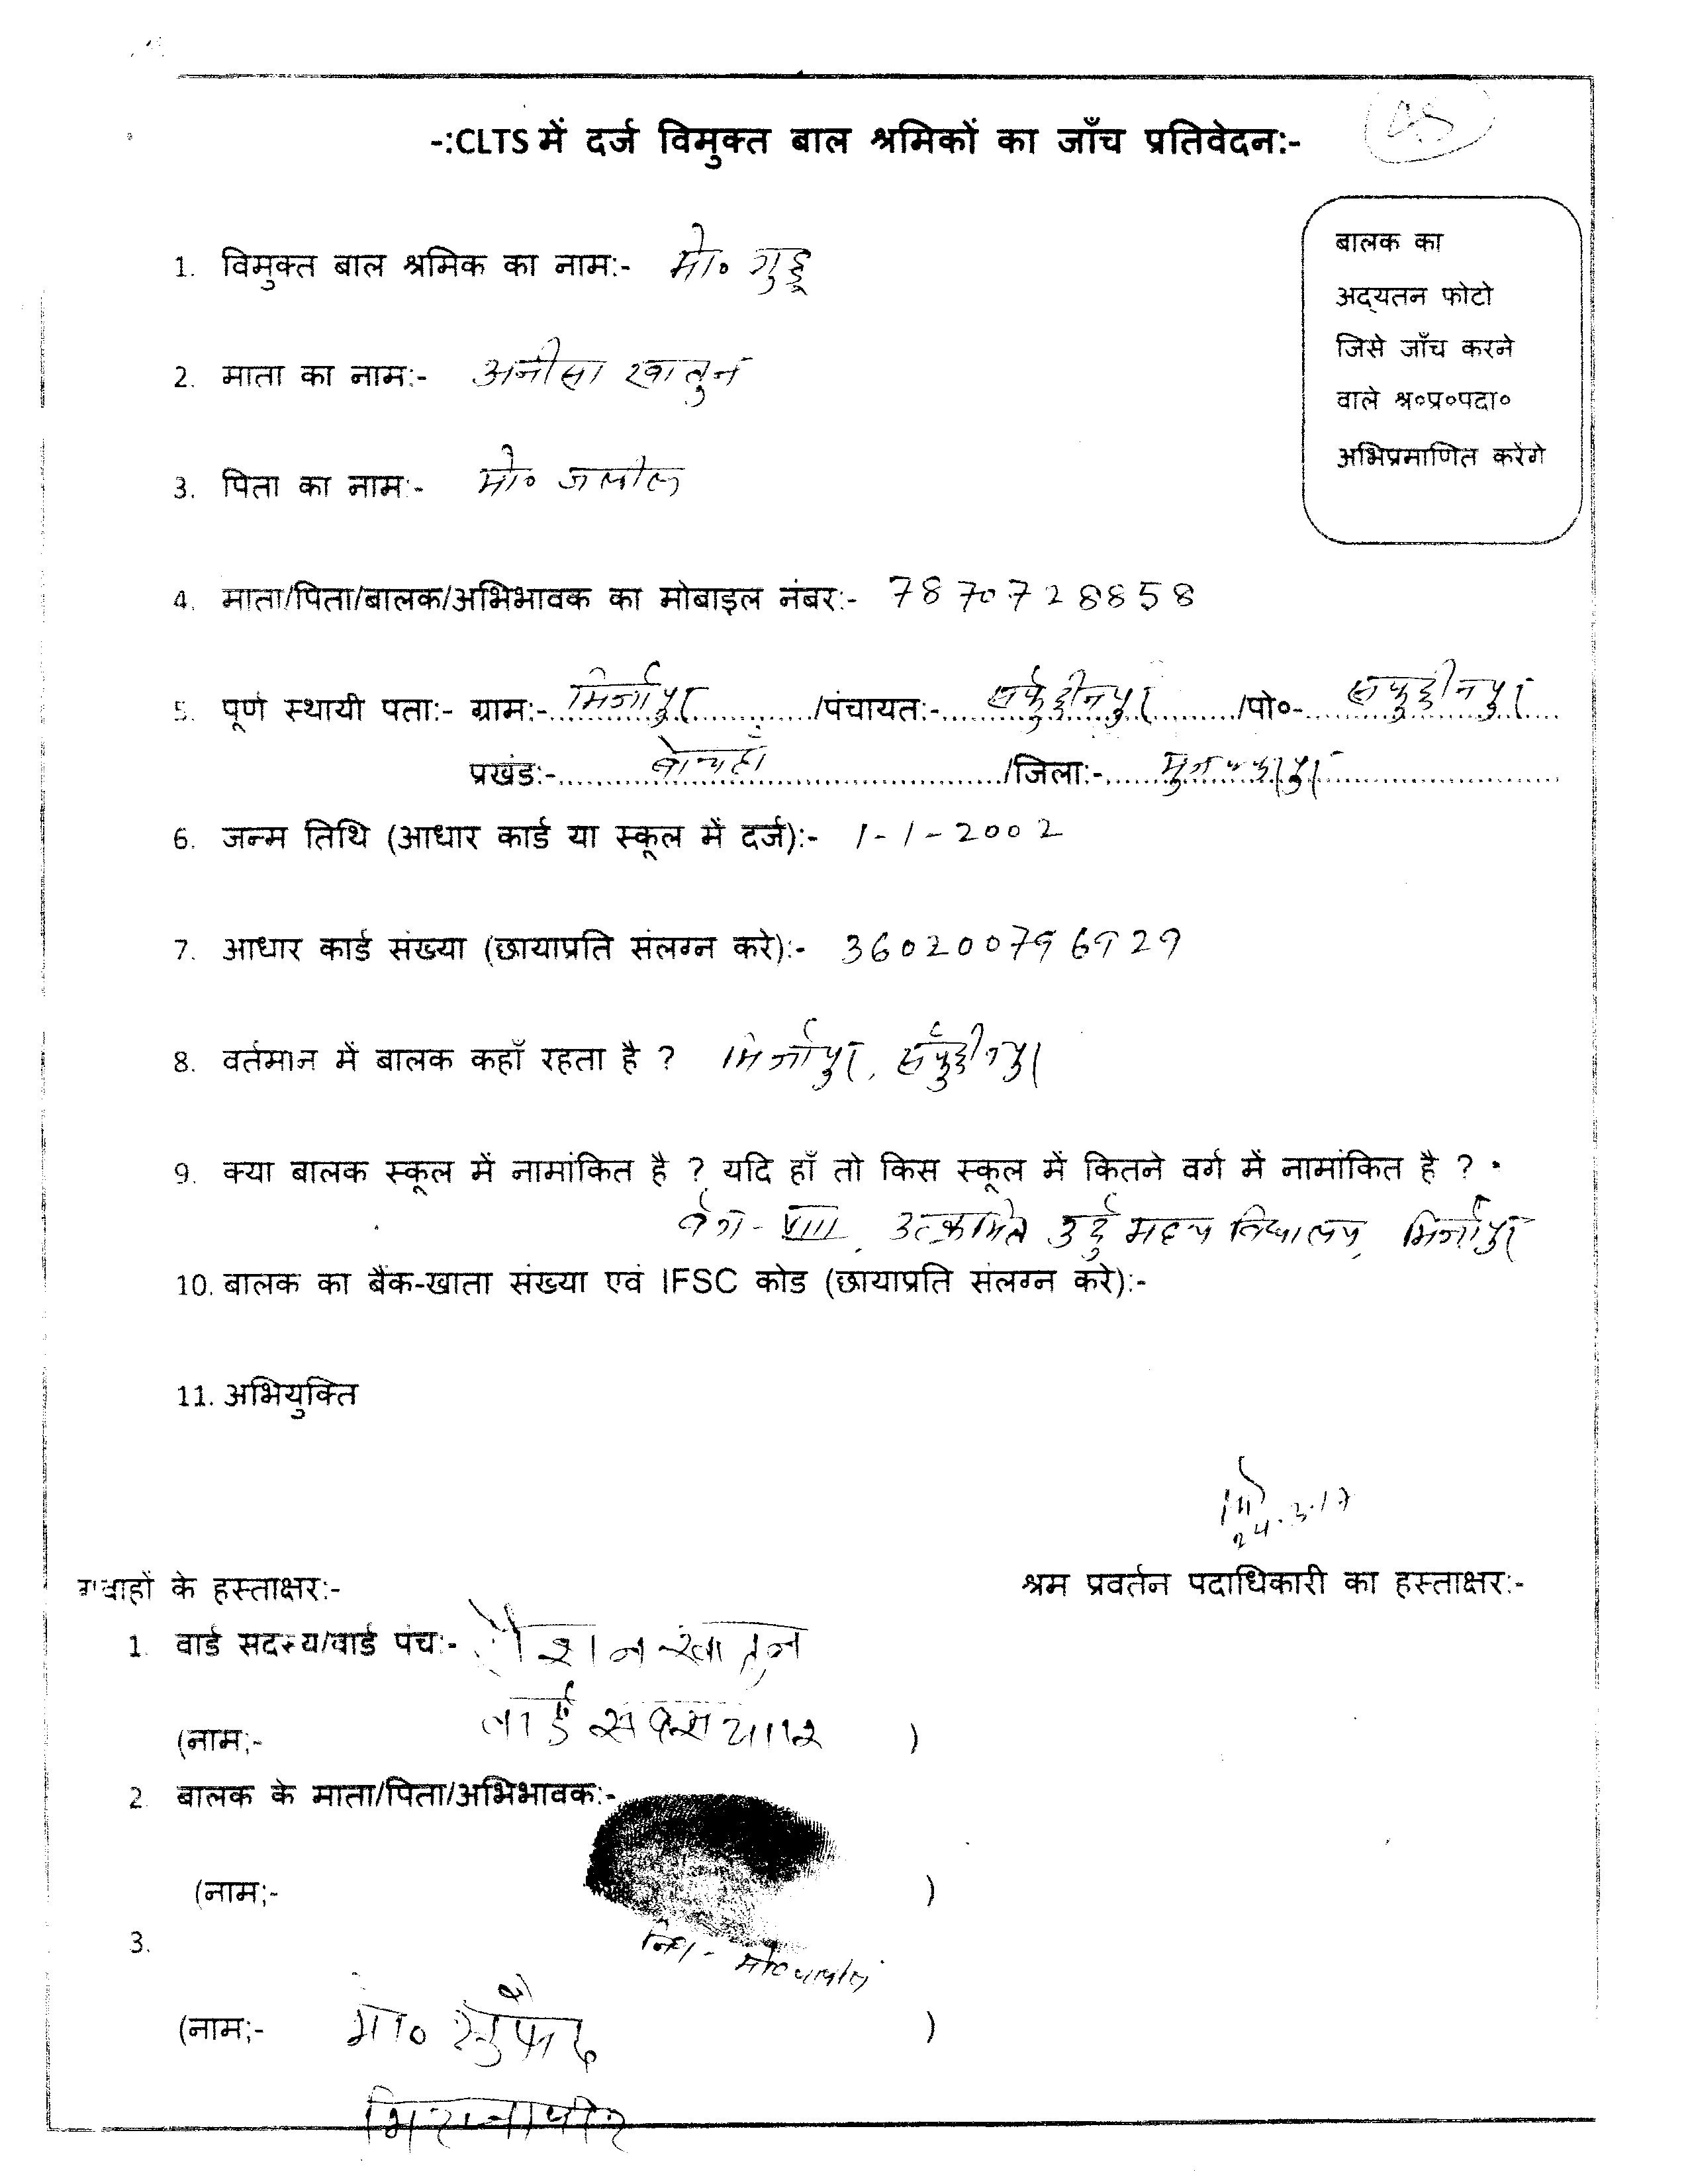 -:CLTS में दर्ज विमुक्त बाल श्रमिकों का जाँच प्रतिवेदन:-
बालक का
अद्यतन फोटो
जिसे जाँच करने
वाले श्र०प्र०पदा०
अभिप्रमाणित करेंगे
1. विमुक्त बाल श्रमिक का नाम:- मो० गुड्डू
2. माता का नाम:- अनीसा खातुन
3. पिता का नाम:- मो० जलील
4. माता/पिता/बालक/अभिभावक का मोबाइल नंबर:- 7870728858
5. पूर्ण स्थायी पता:- ग्राम:- मिर्जापुर /पंचायत:- सर्फुद्दीनपुर /पो०- सर्फुद्दीनपुर
प्रखंड:- बोचहाँ /जिला:- मुजफ्फरपुर
6. जन्म तिथि (आधार कार्ड या स्कूल में दर्ज):- 1-1-2002
7. आधार कार्ड संख्या (छायाप्रति संलग्न करे):- 360200796929
8. वर्तमान में बालक कहाँ रहता है ? मिर्जापुर, सर्फुद्दीनपुर
9. क्या बालक स्कूल में नामांकित है ? यदि हाँ तो किस स्कूल में कितने वर्ग में नामांकित है ?
वर्ग - VIII, उत्क्रमित उर्दू मध्य विद्यालय, मिर्जापुर
10. बालक का बैंक-खाता संख्या एवं IFSC कोड (छायाप्रति संलग्न करे):-
11. अभियुक्ति
24.3.17
गवाहों के हस्ताक्षर:- श्रम प्रवर्तन पदाधिकारी का हस्ताक्षर:-
1. वार्ड सदस्य/वार्ड पंच:- रौशन खातून
(नाम;- वार्ड )
2. बालक के माता/पिता/अभिभावक:-
(नाम;- )
3.
नि० - मो० जलील
(नाम;- मो० )